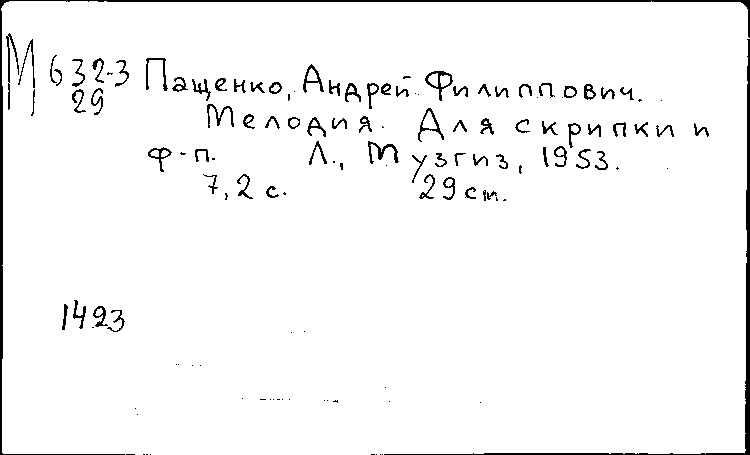 М 632-3 Пащенко, Андрей Филиппович.
29
Мелодия. Для скрипки и
ф-п. Л., Музгиз, 1953.
7, 2 с. 29 см.
1423